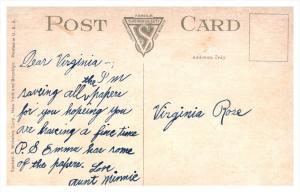 POST CARD
FAMOUS
Address Only
Dear Virginia -,
the I'm
saveing all papers
for you hopeing you
are haveing a fine time
P.S Emma has some
of the papers. Love
aunt Minnie
Virginia Rose